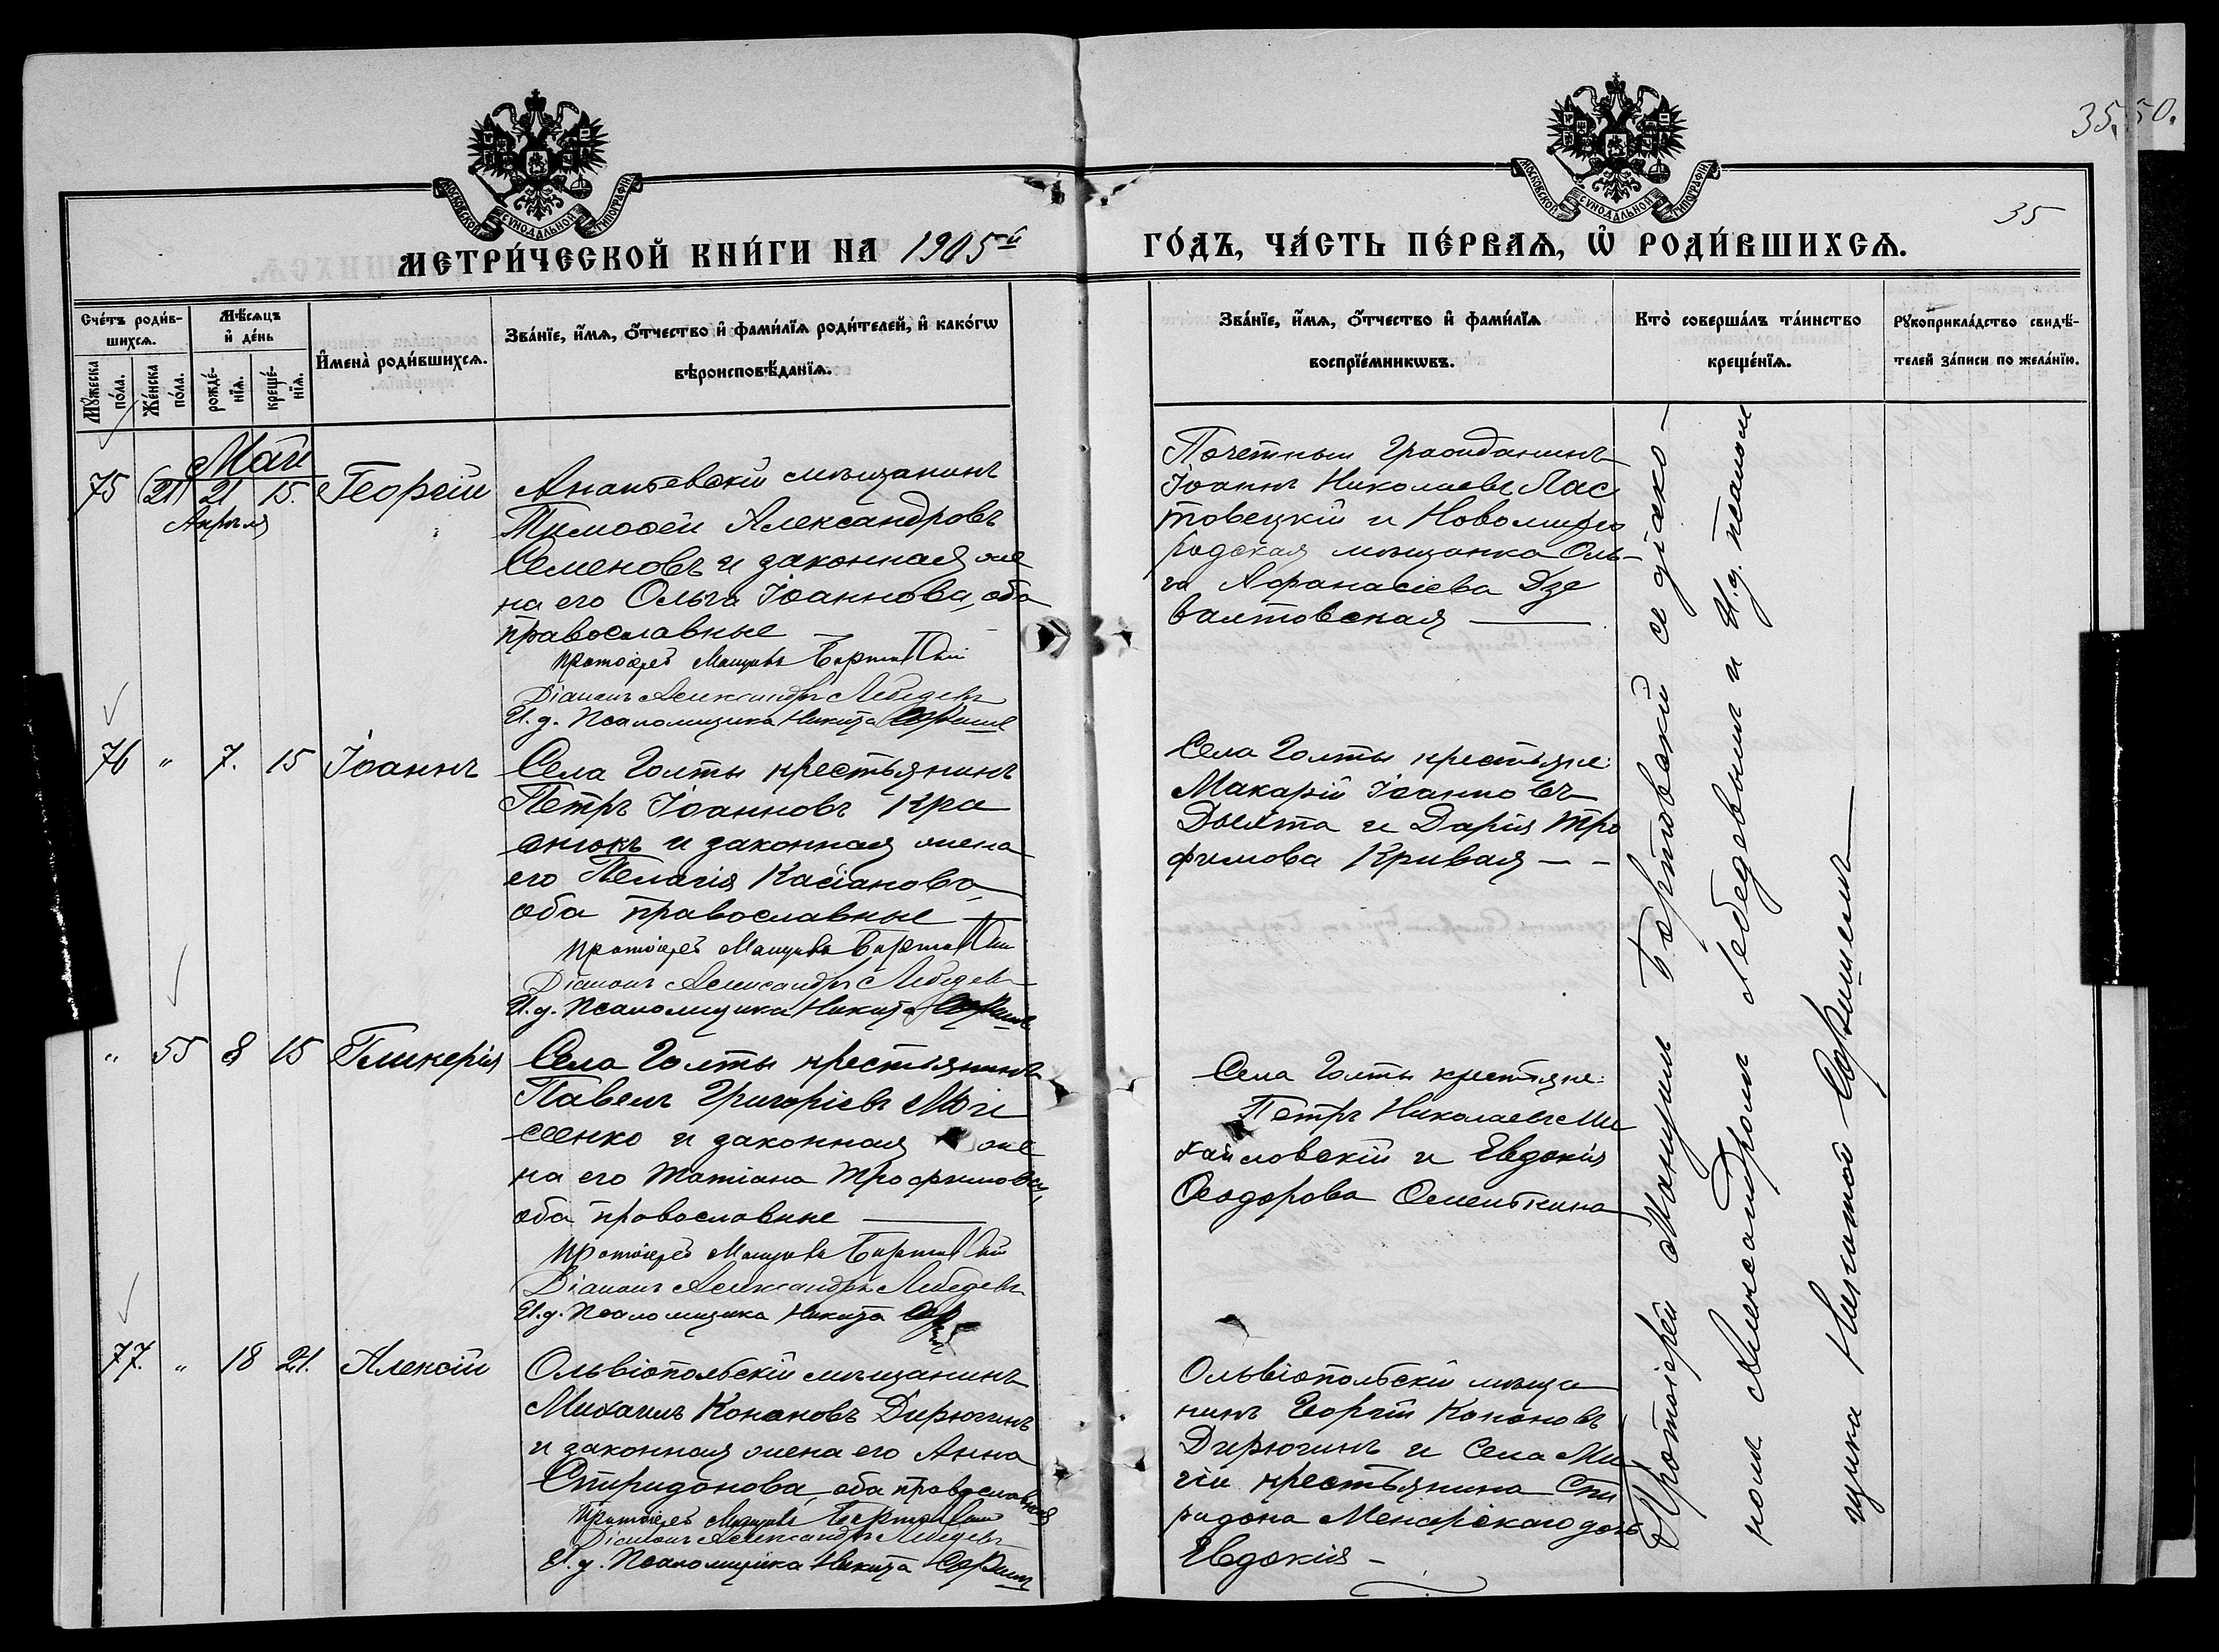 35. 50.
35
МОСКОВСКОЙ СУНОДАЛЬНОЙ ТИПОГРАФІИ
МОСКОВСКОЙ СУНОДАЛЬНОЙ ТИПОГРАФІИ
МЕТРИ́ЧЕСКОЙ КНИ́ГИ НА 1905й ГО́ДЪ, ЧА́СТЬ ПЕ́РВАѦ, Ѡ҆ РОДИ́ВШИХСѦ.
Сче́тъ роди́в-
шихсѧ.
Мꙋ́жеска по́ла.
Же́нска по́ла.
Мѣ́сѧцъ
и҆ де́нь
рожде́-
нїѧ.
креще́-
нїѧ.
И҆мена̀ роди́вшихсѧ.
Зва́нїе, и҆́мѧ, ѻ҆́тчество и҆ фами́лїѧ роди́телей, и҆ како́гѡ
вѣроисповѣ́данїѧ.
Зва́нїе, и҆́мѧ, ѻ҆́тчество и҆ фами́лїѧ
воспрїе́мникѡвъ.
Кто̀ соверша́лъ та́инство
креще́нїѧ.
Рꙋкоприкла́дство свидѣ́-
телей за́писи по жела́нїю.
Май
75 (21) 21 15. Георгій
Апрѣля
Ананьевскій мѣщанинъ
Тимоѳей Александровъ
Семеновъ и законная же
на его Ольга Іоаннова, оба
православные
Протоіерей Мануилъ Бортовскій
Діаконъ Александръ Лебедевъ
И. д. Псаломщика Никита
Почетный Гражданинъ
Іоаннъ Николаевъ Лас
товецкій и Новомирго
родская мѣщанка Оль-
га Афанасіева Дзе
валтовская
76 " 7. 15 Іоаннъ
Села Голты крестьянинъ
Петръ Іоанновъ Кра
снюкъ и законная жена
его Пелагія Касіанова
оба православные
Протоіерей Мануилъ Бортовскій
Діаконъ Александръ Лебедевъ
И. д. Псаломщика Никита
Села Голты крестьяне:
Макарій Іоанновъ
и Дарія Тро
фимова Кривая
" 55 8 15 Гликерія
Села Голты крестьянинъ
Павелъ Григоріевъ Мои
сеенко и законная же
на его Татіана Трофимова,
оба православные
Протоіерей Мануилъ Бортовскій
Діаконъ Александръ Лебедевъ
И. д. Псаломщика Никита
Села Голты крестьяне:
Петръ Николаевъ Ми
хайловскій и Евдокія
Ѳеодорова
77. " 18 21. Алексій
Ольвіопольскій мѣщанинъ
Михаилъ Кононовъ Дирюгинъ
и законная жена его Анна
Спиридонова, оба православные
Протоіерей Мануилъ Бортовскій
Діаконъ Александръ Лебедевъ
И. д. Псаломщика Никита
Ольвіопольскій мѣща
нинъ Георгій Кононовъ
Дирюгинъ и Села Ми
гіи крестьянина Спи
ридона дочь
Евдокія
Протоіерей Мануилъ Бортовскій съ діако-
номъ Александромъ Лебедевымъ и И. д. псалом
щика Никитой